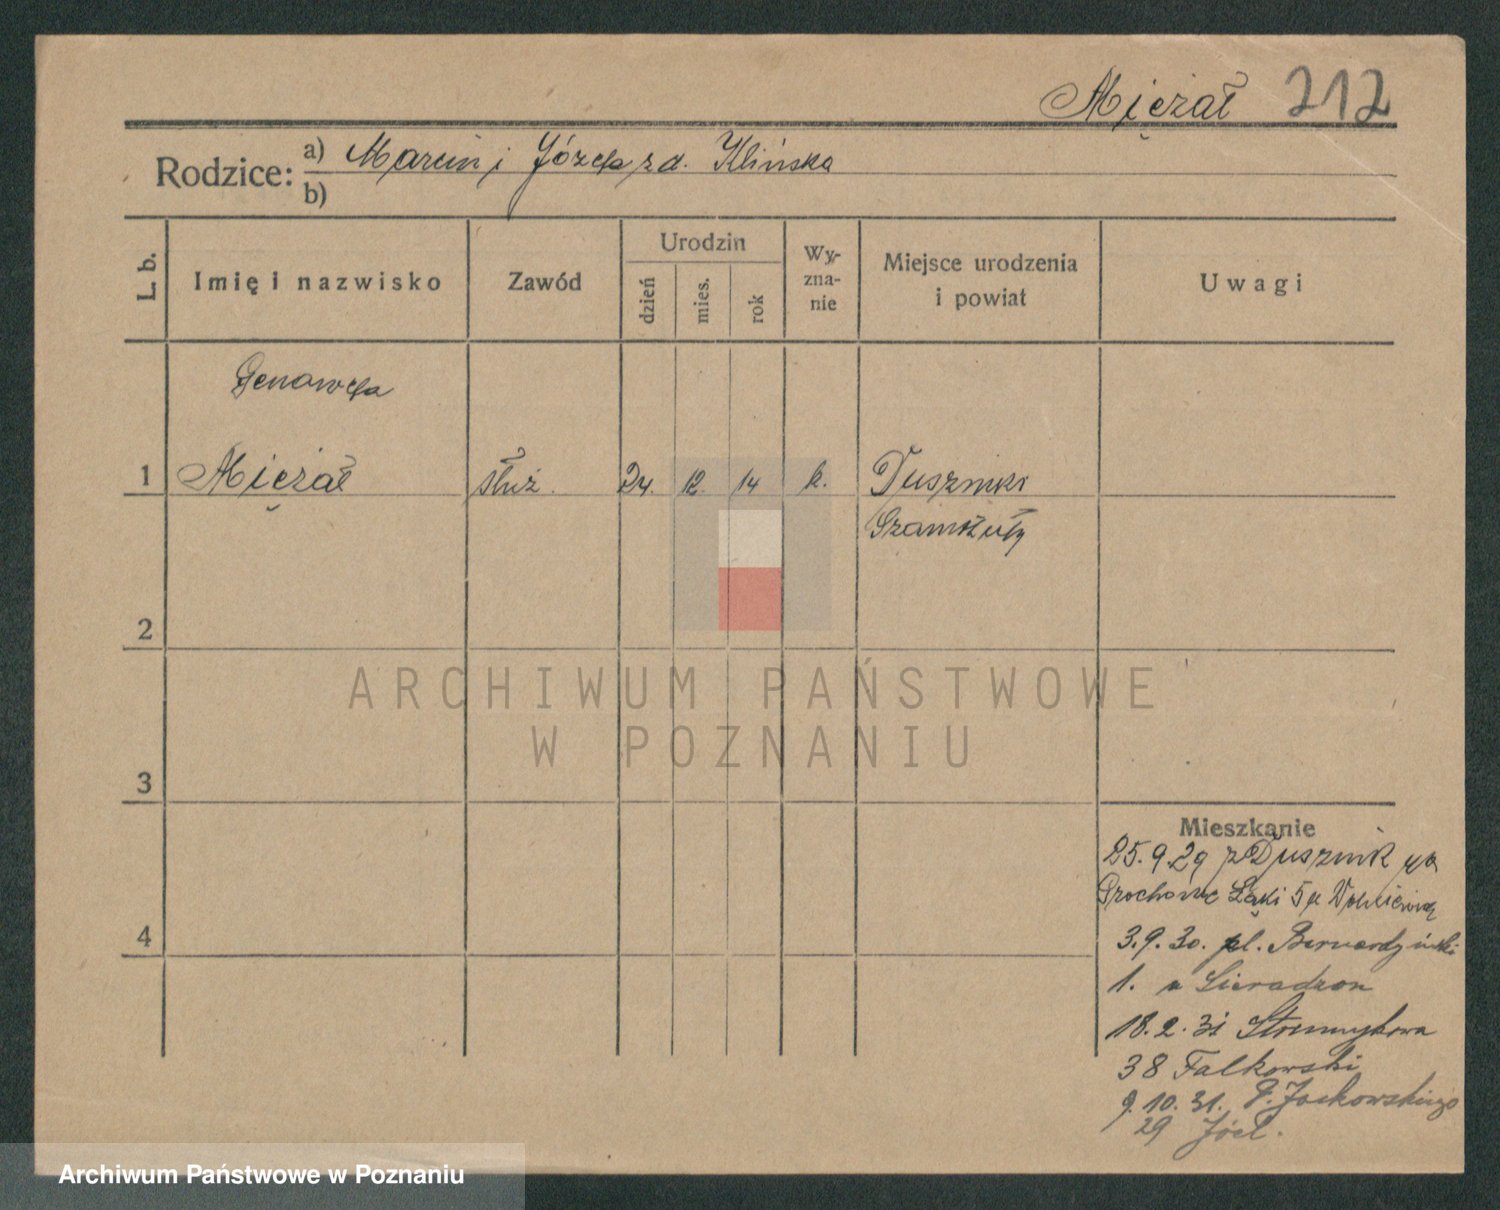 Miężał 212
Rodzice: a) Marcin i Józefa z d. Klińska
b)
L. b. Imię i nazwisko Zawód Urodzin dzień mies. rok Wy-zna-nie Miejsce urodzenia i powiat Uwagi
Genowefa
1 Miężał służ. 24. 12. 14 k. Duszniki
Szamotuły
2
3
4
Mieszkanie
25.9.29 z Dusznik
Grochowe Łąki 5
3.9.30. pl. Bernardyński
1. Sieradzon
18.2.31
38 Falkowski
9.10.31. P. Jackowskiego
29
ARCHIWUM PAŃSTWOWE
W POZNANIU
Archiwum Państwowe w Poznaniu